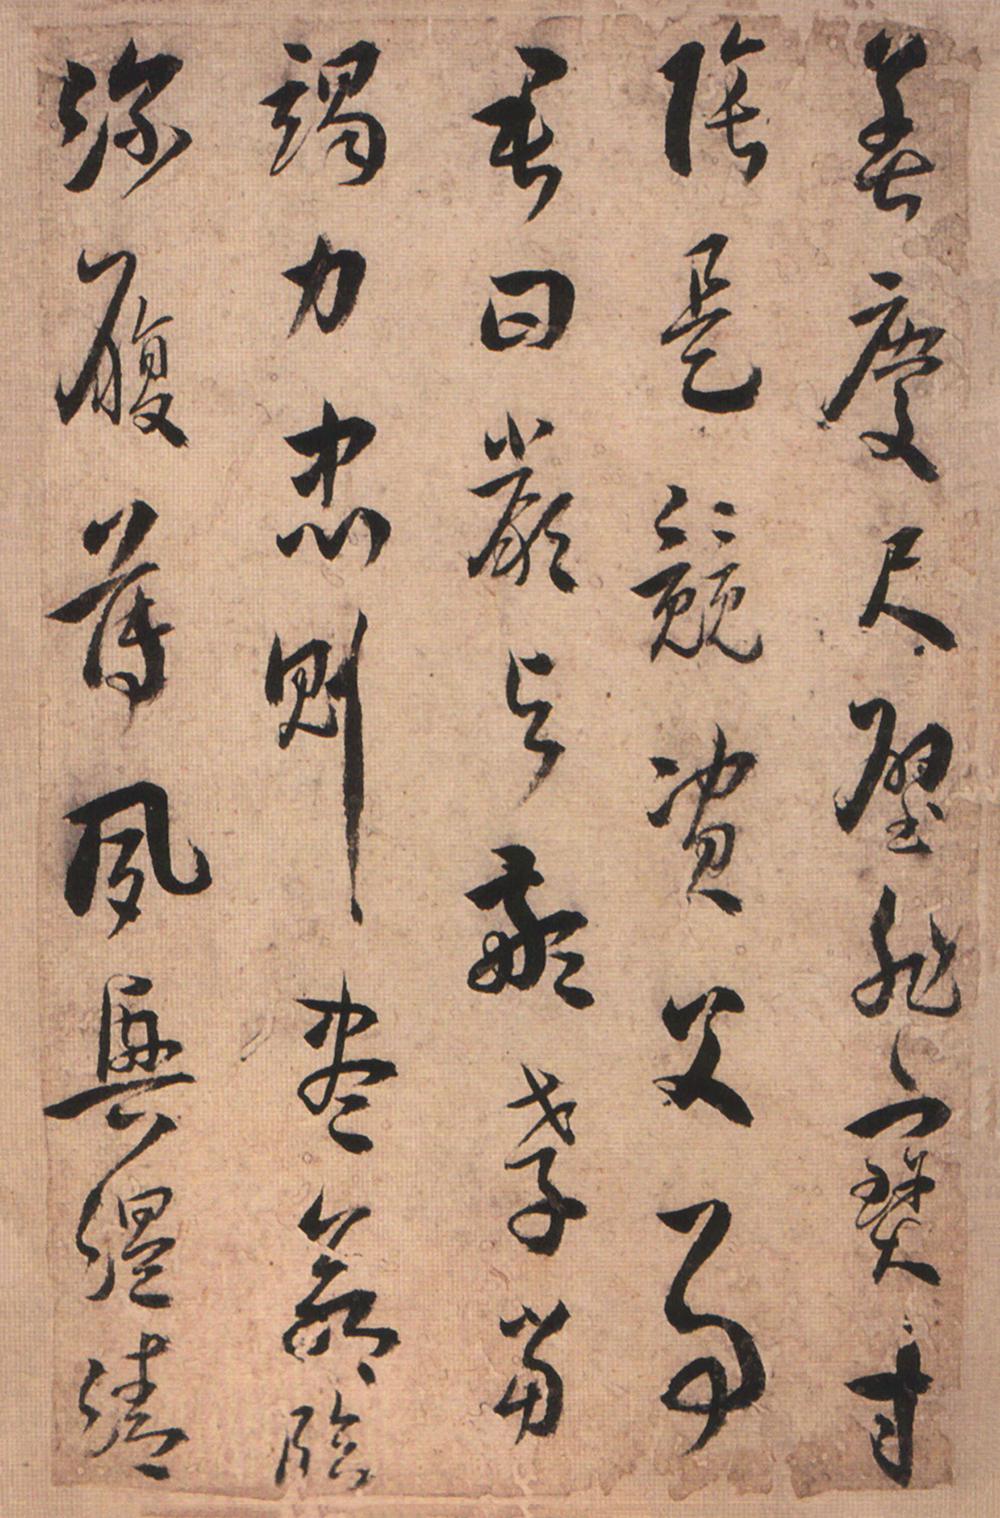 善慶尺璧非寶寸
陰是競資父事
君曰嚴与敬孝當
竭力忠則盡命臨
深履薄夙興溫清